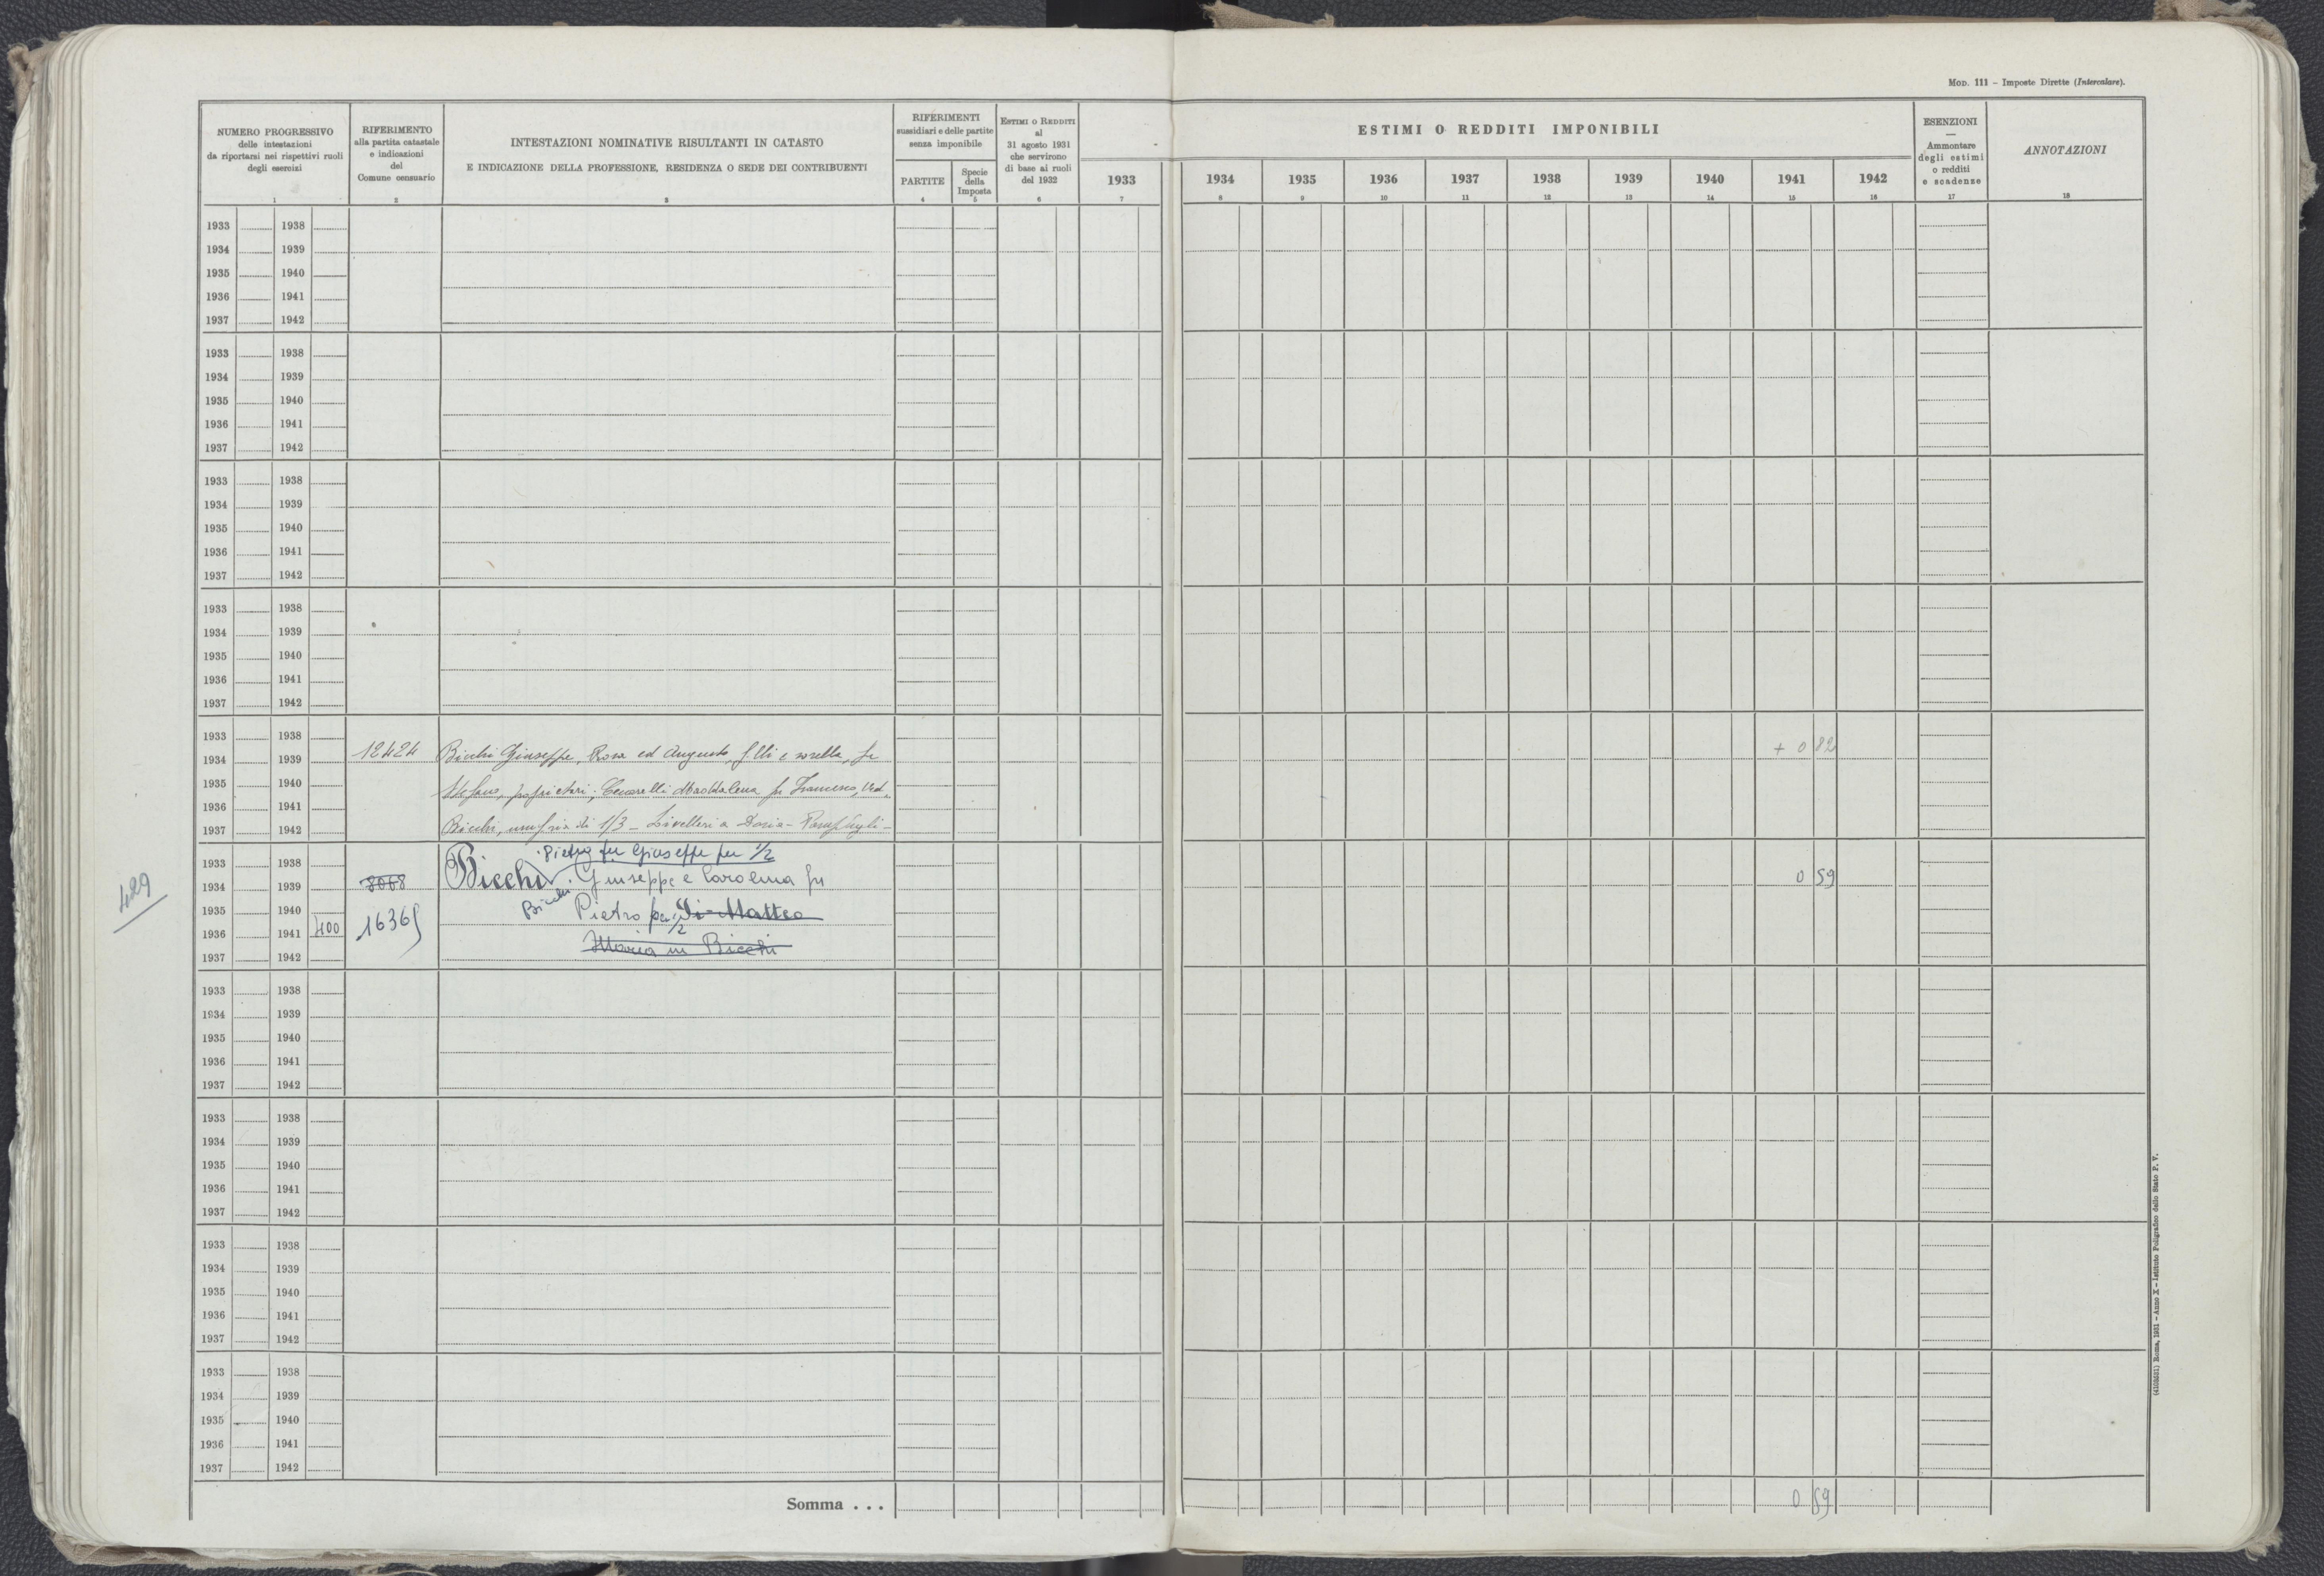 MOD. 111 – Imposte Dirette (Intercalare).
NUMERO PROGRESSIVO
delle intestazioni
da riportarsi nei rispettivi ruoli
degli esercizi
1
RIFERIMENTO
alla partita catastale
e indicazioni
del
Comune censuario
2
INTESTAZIONI NOMINATIVE RISULTANTI IN CATASTO
E INDICAZIONE DELLA PROFESSIONE, RESIDENZA O SEDE DEI CONTRIBUENTI
3
RIFERIMENTI
sussidiari e delle partite
senza imponibile
PARTITE
4
Specie
della
Imposta
5
ESTIMI O REDDITI
al
31 agosto 1931
che servirono
di base ai ruoli
del 1932
6
ESTIMI O REDDITI IMPONIBILI
1933 1934 1935 1936 1937 1938 1939 1940 1941 1942
7 8 9 10 11 12 13 14 15 16
ESENZIONI
—
Ammontare
degli estimi
o redditi
e scadenze
17
ANNOTAZIONI
18
1933 1938
1934 1939
1935 1940
1936 1941
1937 1942
1933 1938
1934 1939
1935 1940
1936 1941
1937 1942
1933 1938
1934 1939
1935 1940
1936 1941
1937 1942
1933 1938
1934 1939
1935 1940
1936 1941
1937 1942
1933 1938
1934 1939 12424 Bicchi Giuseppe, Rosa ed Augusto, f.lli e sorella, fu + 0 82
1935 1940 Stefano, proprietari; Maddalena fu Francesco, Ved.
1936 1941
1937 1942 Bicchi, usuf.ria di 1/3 – Livellari a Doria-Pamphyli –
1933 1938 Pietro fu Giuseppe per 1/2
1934 1939 8068 Bicchi Giuseppe e Carolina fu 0 59
1935 1940 Bicchi Pietro per 1/2 Di Matteo
1936 1941 400 16365
1937 1942 Maria in Bicchi
429
1933 1938
1934 1939
1935 1940
1936 1941
1937 1942
1933 1938
1934 1939
1935 1940
1936 1941
1937 1942
1933 1938
1934 1939
1935 1940
1936 1941
1937 1942
1933 1938
1934 1939
1935 1940
1936 1941
1937 1942
Somma . . . 0 59
(4105631) Roma, 1931 – Anno X – Istituto Poligrafico dello Stato P. V.